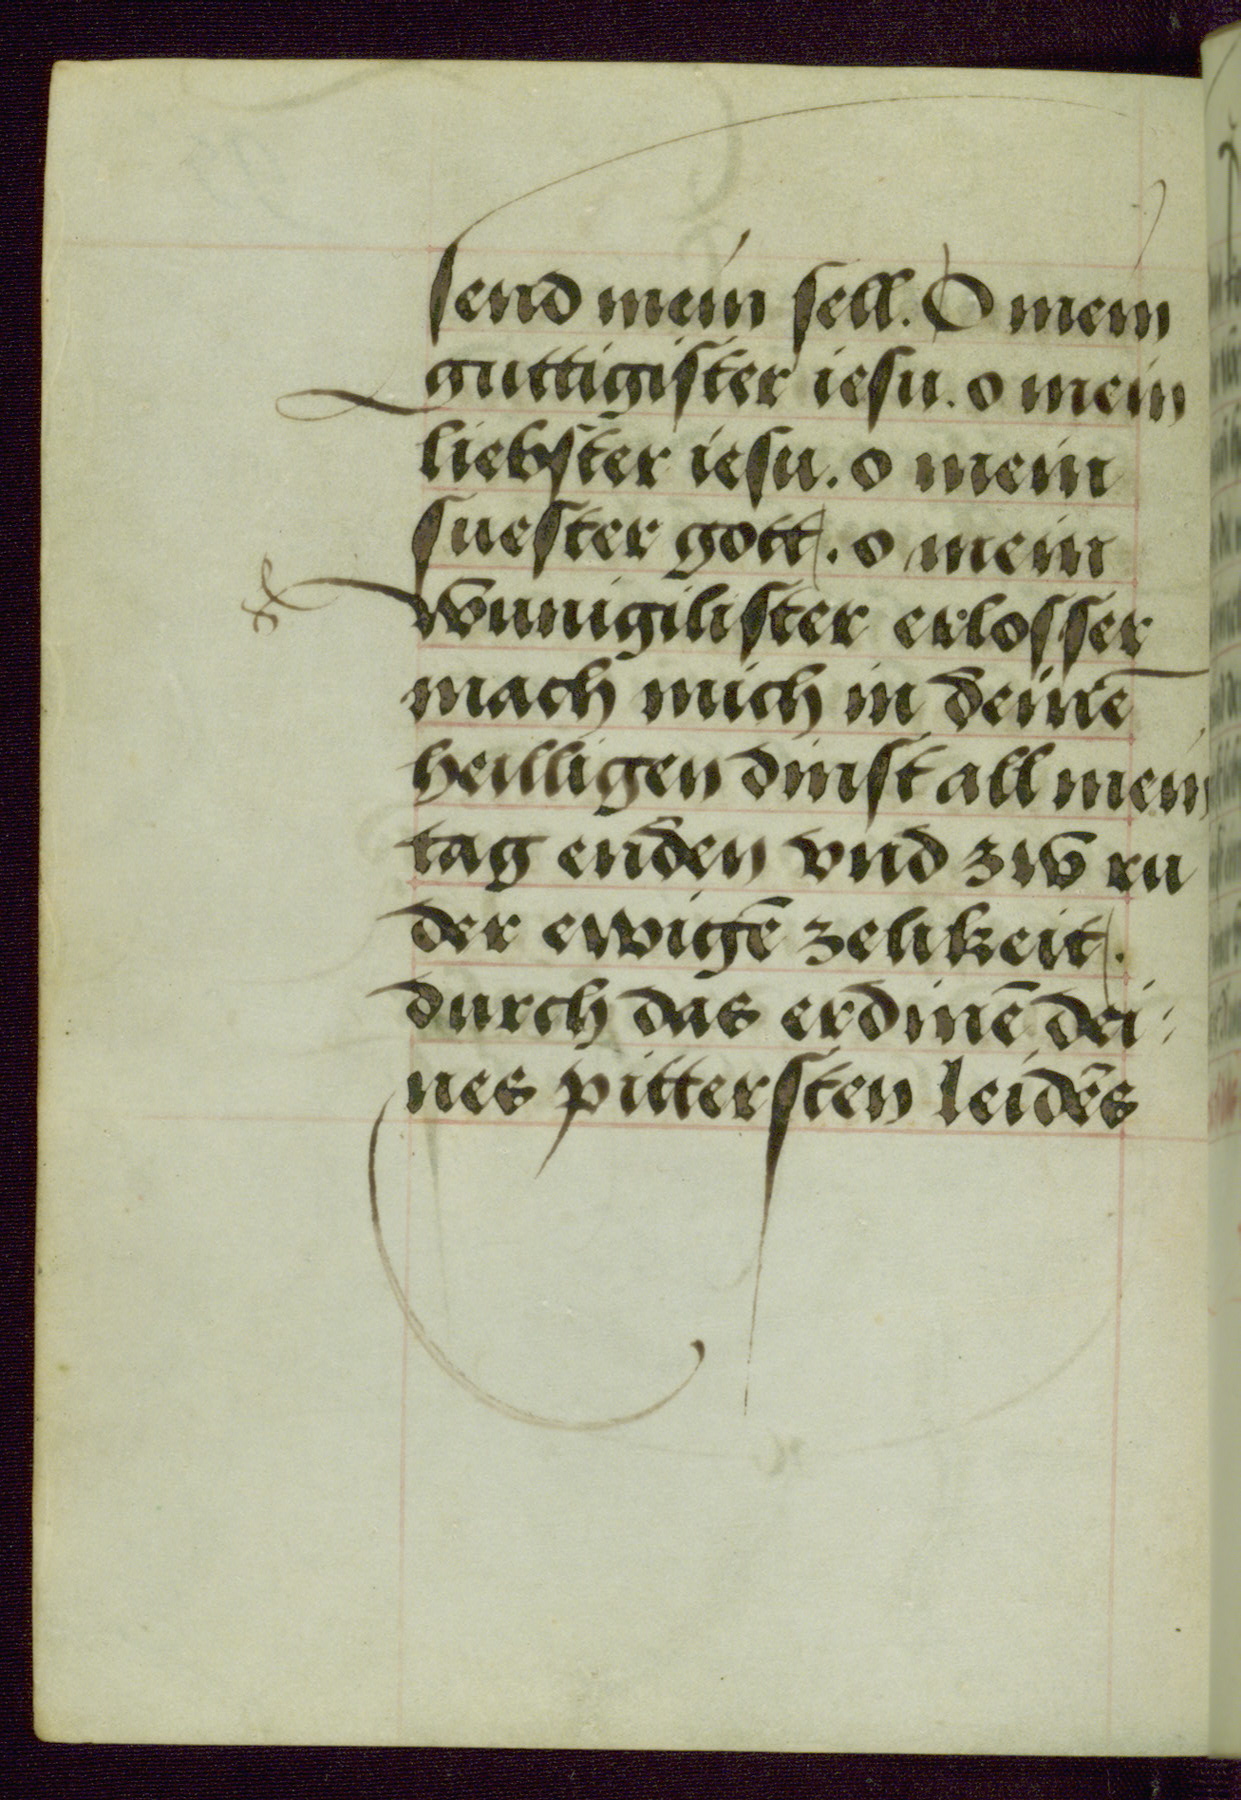 send mein sell. O mein
guttigister iesu. o mein
liebster iesu. o mein
suester gott. o mein
wunigilister erlosser
mach mich in deinē
heilligen dinst all mein
tag enden vnd zw ru
der ewigē zelikeit.
durch das erdinē dei:
nes pittersten leidēs